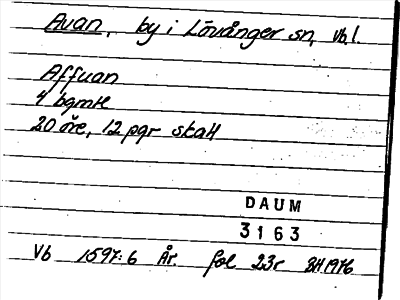 Avan, by i Lövånger sn, Vb l.
Affuan
4 bgmR
20 öre, 12 pgr skatt
DAUM
3163
Vb 1597:6 År. fol 23r BH 1976